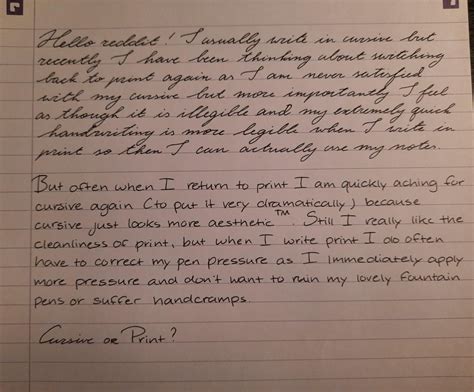 Hello reddit! I usually write in cursive but
recently I have been thinking about switching
back to print again as I am never satisfied
with my cursive but more importantly I feel
as though it is illegible and my extremely quick
handwriting is more legible when I write in
print so then I can actually use my notes.
But often when I return to print I am quickly aching for
cursive again (to put it very dramatically) because
cursive just looks more aesthetic™. Still I really like the
cleanliness of print, but when I write print I do often
have to correct my pen pressure as I immediately apply
more pressure and don't want to ruin my lovely fountain
pens or suffer handcramps.
Cursive or Print?